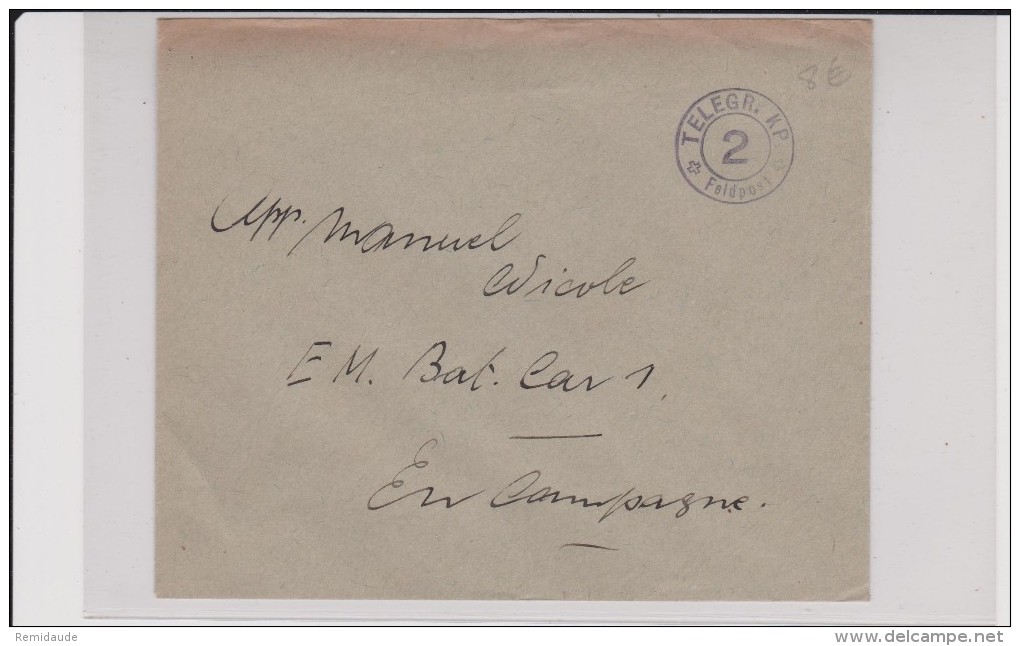 8 €
TELEGR. KP.
2
Feldpost
App. Manuel
Nicole
E M. Bat. Car 1.
En Campagne.
Remidaude
www.delcampe.net